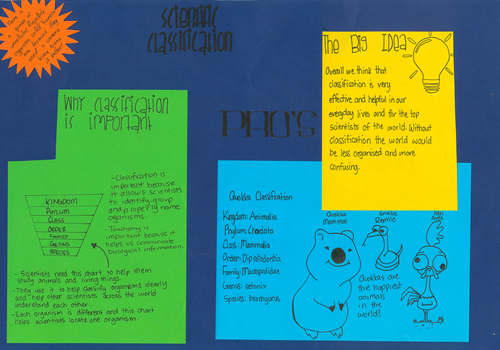 Scientific
Classification
The Big Idea
Overall we think that
classification is very
effective and helpful in our
everyday lives and for the top
scientists of the world. Without
classification the world would
be less organised and more
confusing.
Why Classification
is important
PHU'S
- Classification is
important because it
allows scientists
to identify, group
and properly name
organisms.
- Taxonomy is
important because it
helps us communicate
biological information.
KINGDOM
PHYLUM
CLASS
ORDER
FAMILY
GENUS
SPECIES
- Scientists need this chart to help them
study animals and living things.
- They use it to help classify organisms clearly
and help other scientists across the world
understand each other.
- Each organism is different and this chart
helps scientists locate one organism.
Quokka Classification
Kingdom: Animalia
Phylum: Chordata
Class: Mammalia
Order: Diprotodontia
Family: Macropodidae
Genus: setonix
Species: brachyurus
Quokka
Mammal
Snake
Reptile
Hei Hei
Aves
Quokkas are
the happiest
animals
in the
world!